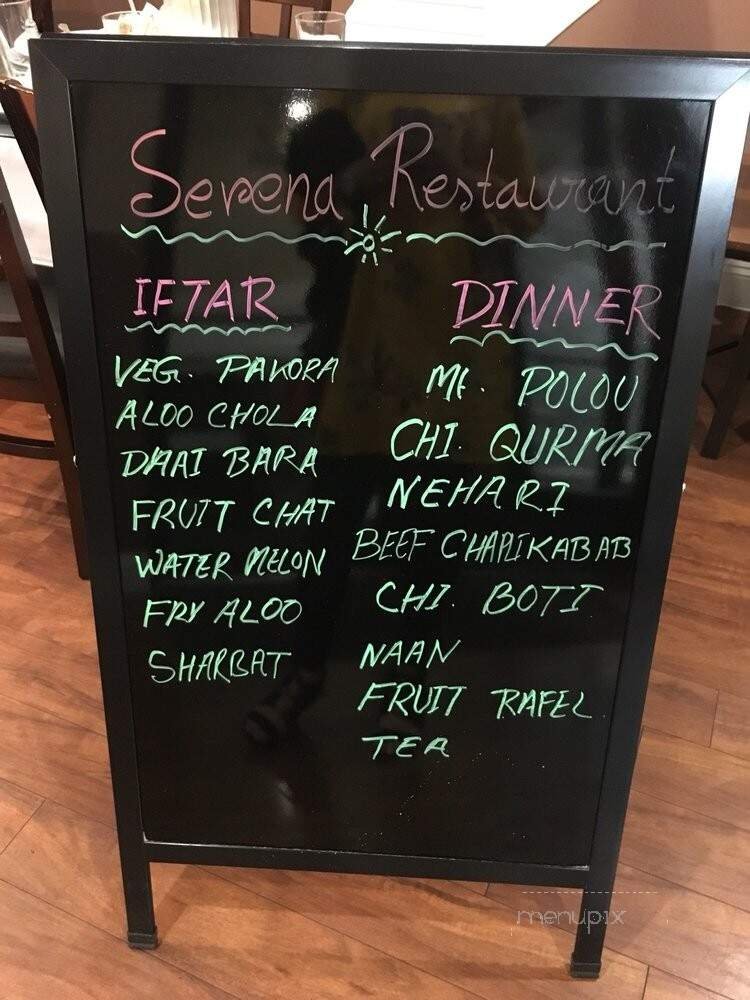 Serena Restaurant
IFTAR
VEG. PAKORA
ALOO CHOLA
DAAI BARA
FRUIT CHAT
WATER MELON
FRY ALOO
SHARBAT
DINNER
MT. POLOU
CHI. QURMA
NEHARI
BEEF CHAPLI KABAB
CHI. BOTI
NAAN
FRUIT RAFEL
TEA
menupix